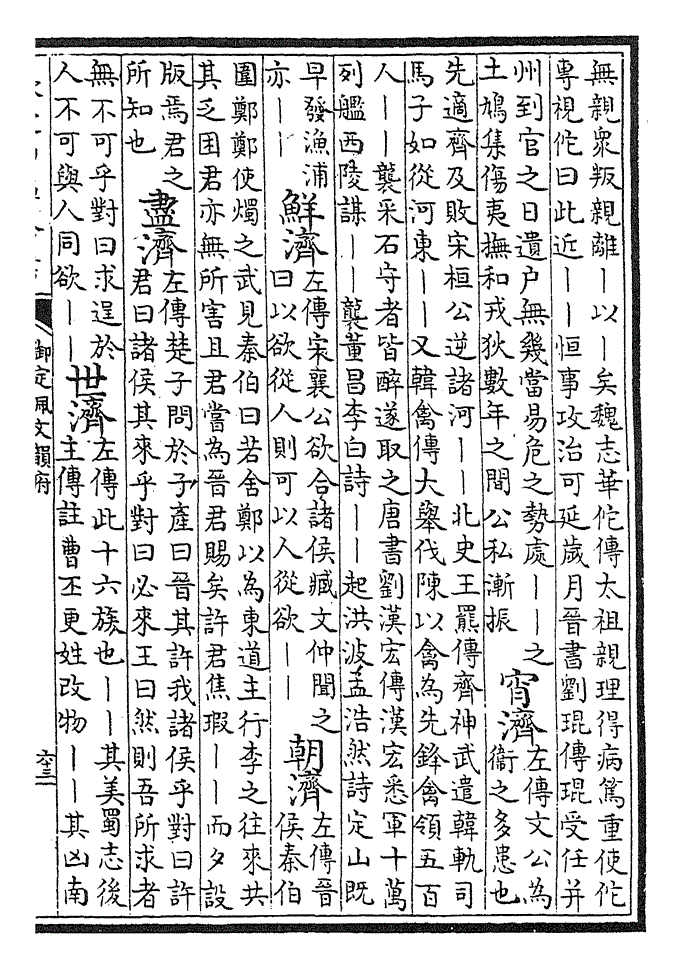 無親衆叛親離丨以丨矣魏志華佗傳太祖親理得病篤重使佗
專視佗曰此近丨丨恒事攻治可延歲月晉書劉琨傳琨受任并
州到官之日遺户無幾當易危之勢處丨丨之
土鳩集傷夷撫和戎狄數年之間公私漸振
宵濟
左傳文公為
衞之多患也
先適齊及敗宋桓公逆諸河丨丨北史王羆傳齊神武遣韓軌司
馬子如從河東丨丨又韓禽傳大舉伐陳以禽為先鋒禽領五百
人丨丨襲采石守者皆醉遂取之唐書劉漢宏傳漢宏悉軍十萬
列艦西陵謀丨丨襲董昌李白詩丨丨起洪波孟浩然詩定山既
早發漁浦
亦丨丨
鮮濟
左傳宋襄公欲合諸侯臧文仲聞之
曰以欲從人則可以人從欲丨丨
朝濟
左傳晉
侯秦伯
圍鄭鄭使燭之武見秦伯曰若舍鄭以為東道主行李之往來共
其乏困君亦無所害且君嘗為晉君賜矣許君焦瑕丨丨而夕設
版焉君之
所知也
盡濟
左傳楚子問於子產曰晉其許我諸侯乎對曰許
君曰諸侯其來乎對曰必來王曰然則吾所求者
無不可乎對曰求逞於
人不可與人同欲丨丨
世濟
左傳此十六族也丨丨其美蜀志後
主傳註曹丕更姓改物丨丨其凶南
御定佩文韻府
六三